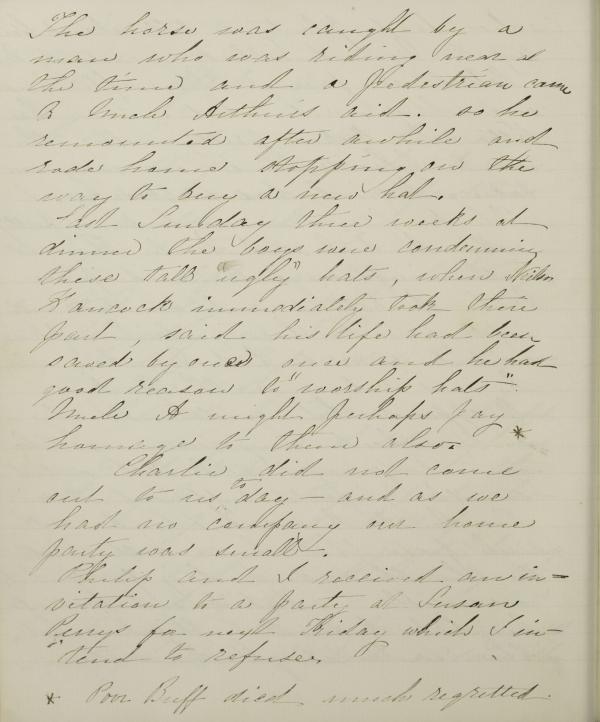 The horse was caught by a
man who was riding near at
the time and a pedestrian came
to Uncle Arthur's aid. so he
remounted after awhile and
rode home stopping on the
way to buy a new hat.
Last Sunday three weeks at
dinner the boys were condemning
these tall "ugly" hats, when
Hancock immediately took their
part, said his life had been
saved by one once and he had
good reason to "worship hats".
Uncle A might perhaps pay
homage to them also. *
Charlie did not come
out to us to day - and as we
had no company our home
party was small.
Philip and I received an in-
vitation to a party at Susan
Perrys for next Friday which I in-
tend to refuse.
* Poor Buff died much regretted.